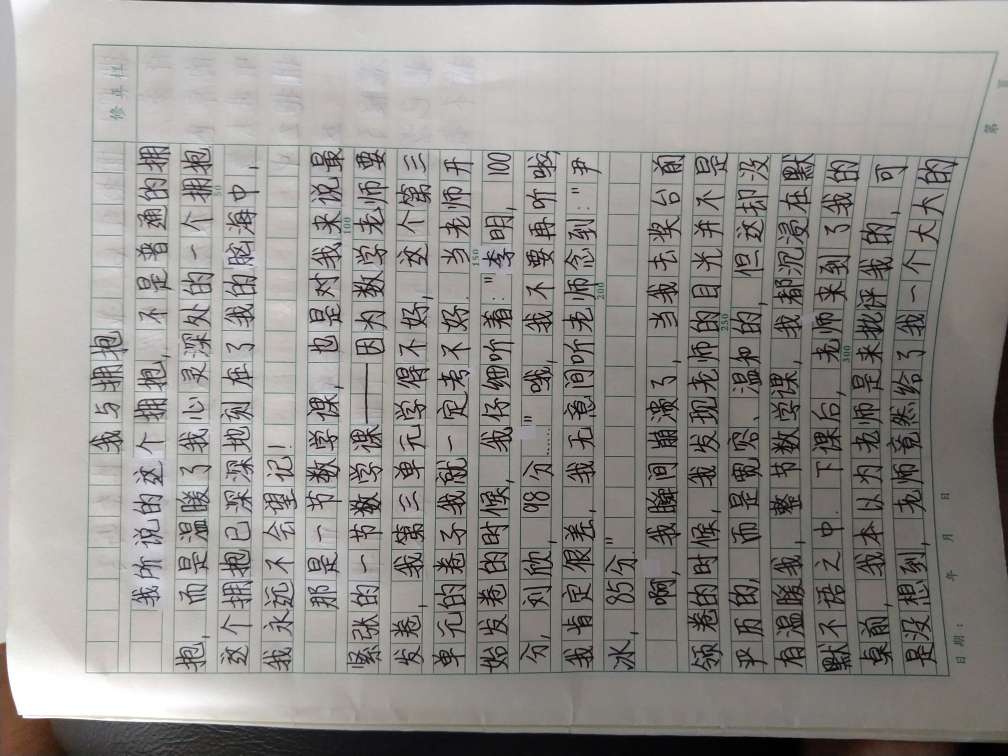 修正栏
我与拥抱
我所说的这个拥抱,不是普通的拥
抱,而是温暖了我心灵深处的一个拥抱
50
这个拥抱已深深地刻在了我的脑海中,
我永远不会望记!
那是一节数学课,也是对我来说最
100
紧张的一节数学课——因为数学老师要
发卷,我第三单元学得不好,这个第三
单元的卷子我就一定考不好.当老师开
150
始发卷的时候,我仔细听着:"李明,100
分,刘欣,98分……"哦,我不要再听啦,
我肯定很差,我无意间听老师念到:"尹
200
冰,85分."
啊,我瞬间崩溃了,当我去奖台前
领卷的时候,我发现老师的目光并不是
250
严厉的,而是宽容、温和的,但这却没
有温暖我,整节数学课,我都沉浸在默
默不语之中.下课后,老师来到了我的
300
桌前,我本以为老师是来批评我的,可
是没想到,老师竟然给了我一个大大的
日期: 年 月 日
第 页